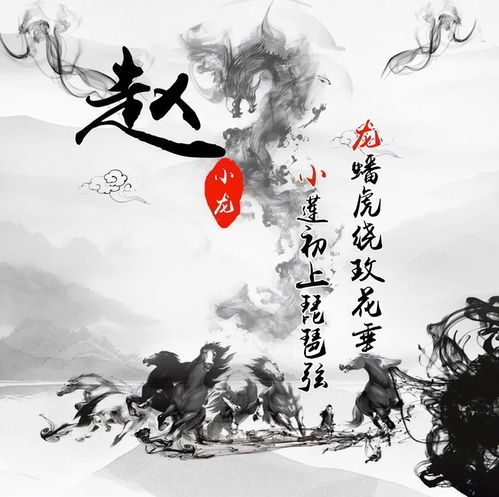 赵
小龙
龙蟠虎绕玫花垂
小莲初上琵琶弦